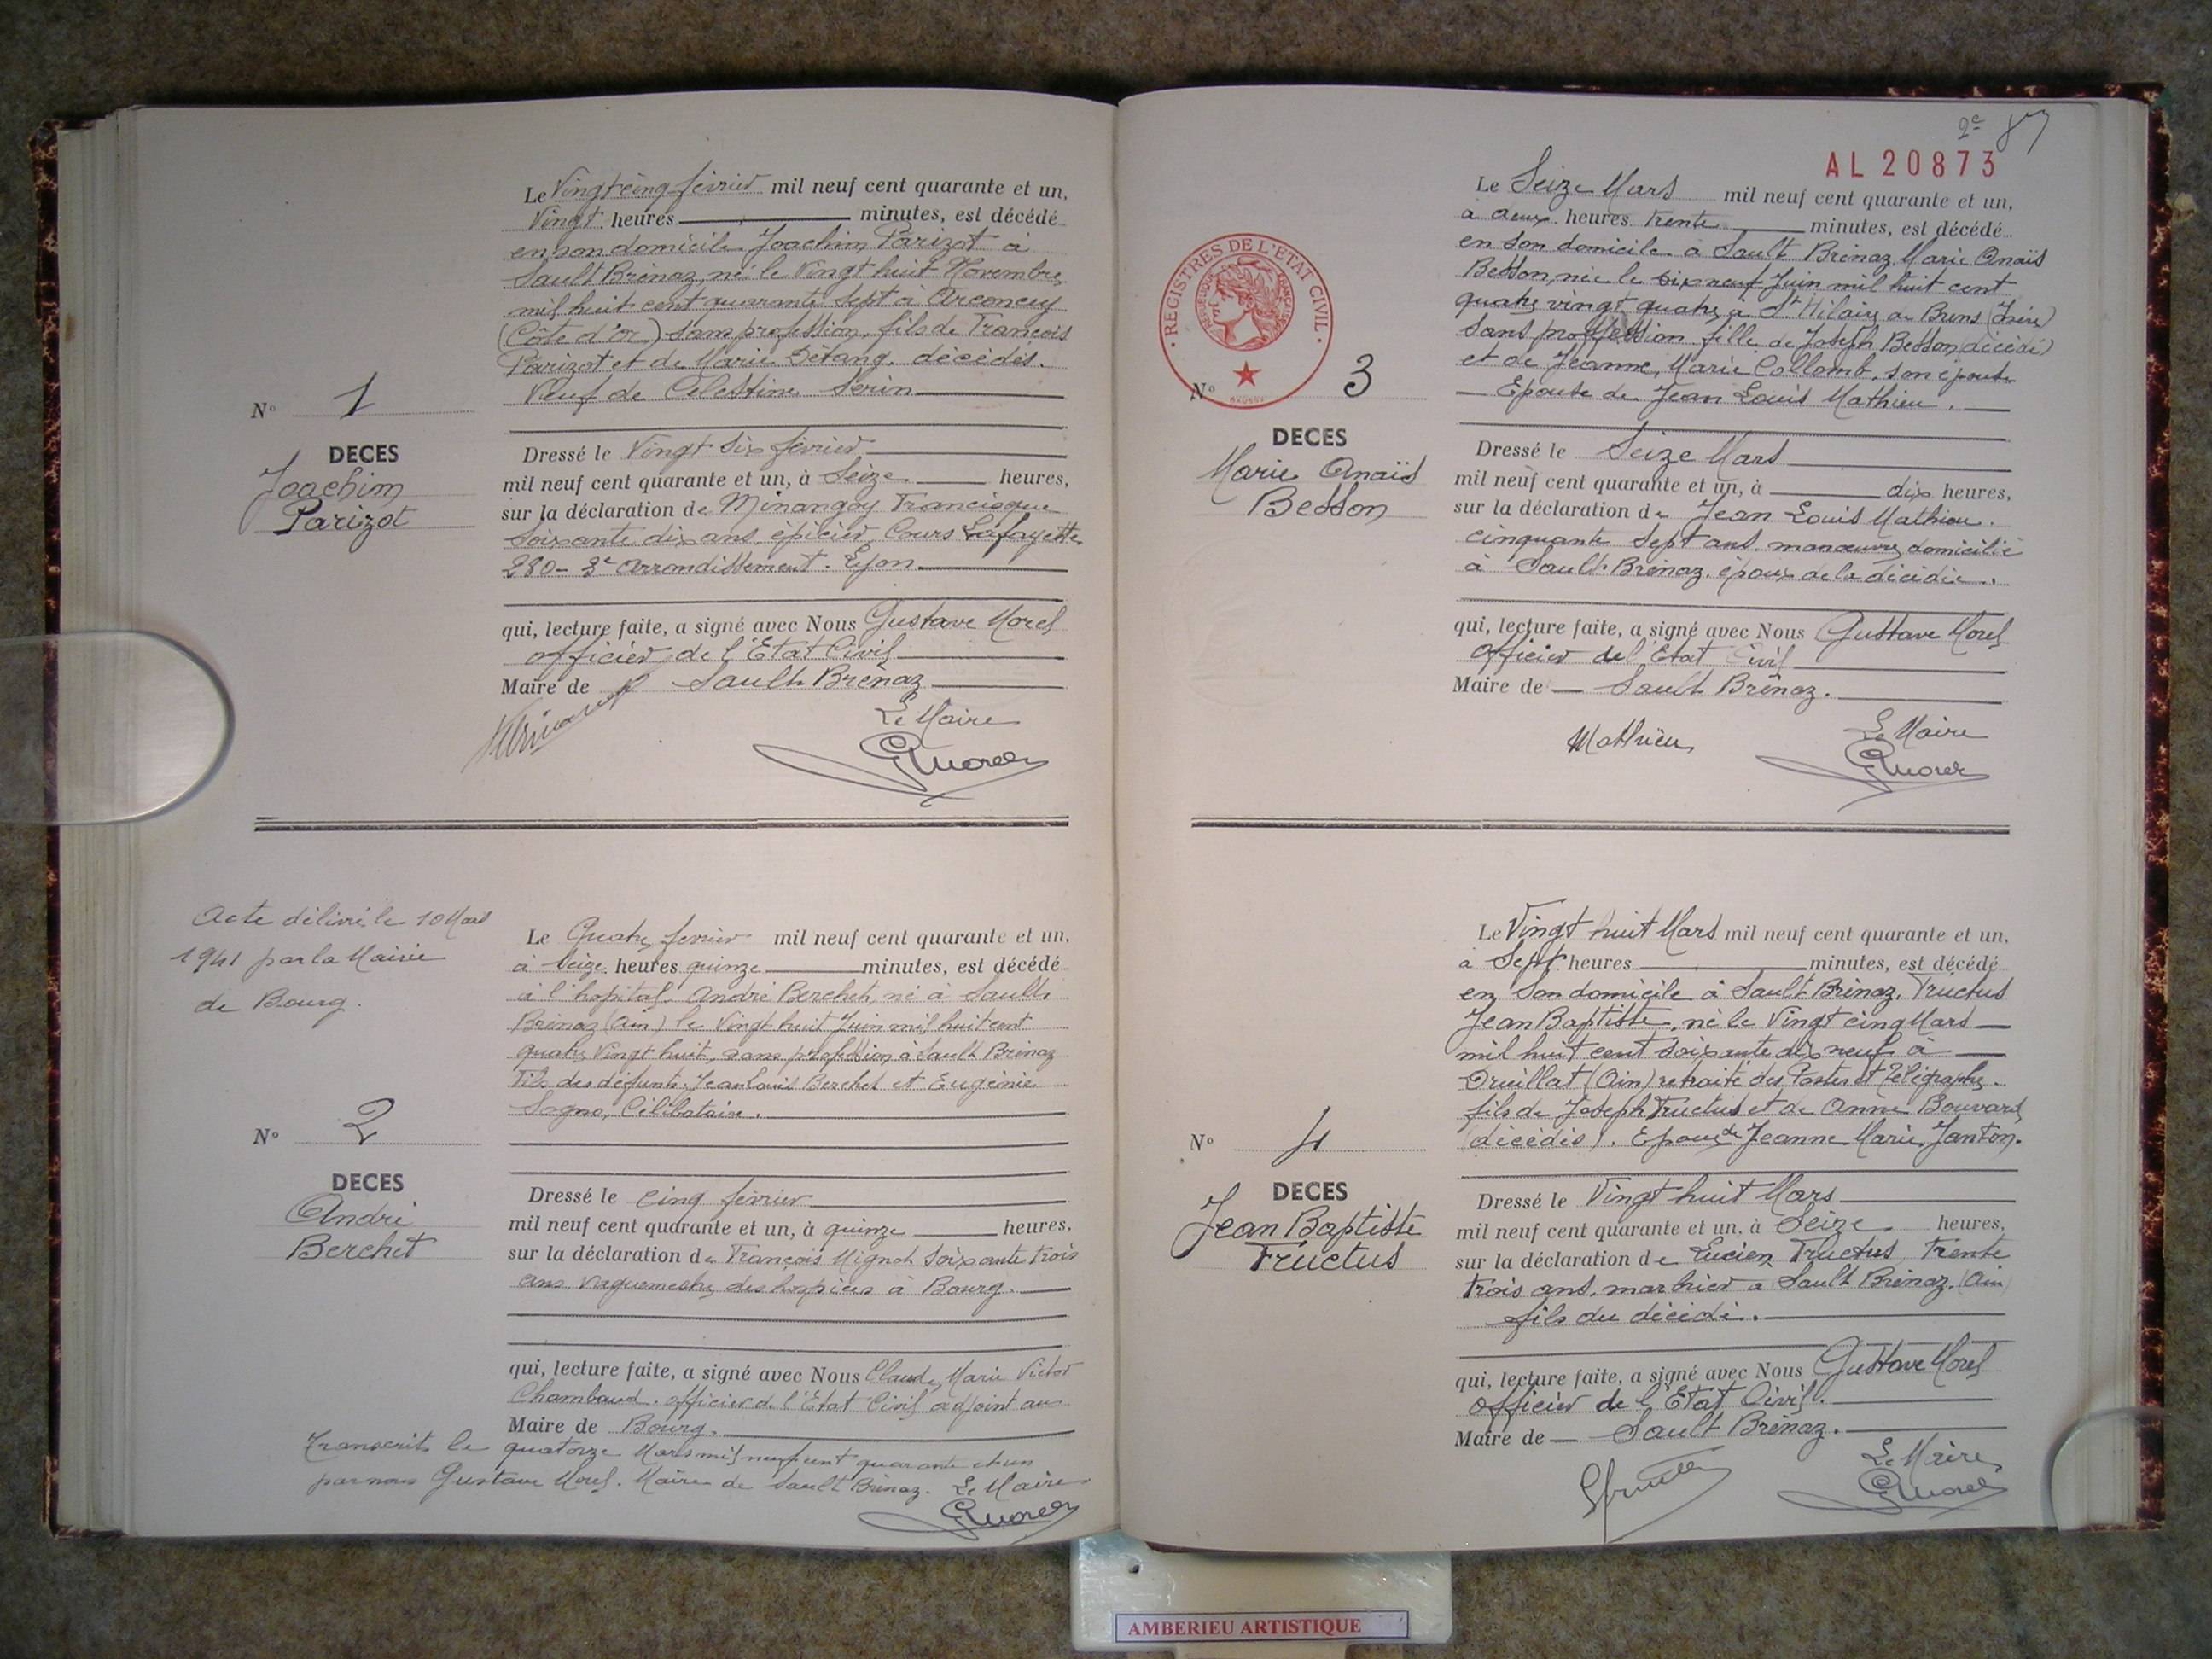 Le Vingt cinq février mil neuf cent quarante et un,
Vingt heures minutes, est décédé
en son domicile Joachim Parizot à
Sault Brénaz, né le Vingt huit Novembre
mil huit cent quarante sept à Arconcey
(Côte d'or) sans profession, fils de François
Parizot et de Marie Détang, décédés.
Veuf de Célestine Serin
N° 1
DECES
Joachim
Parizot
Dressé le Vingt six février
mil neuf cent quarante et un, à Seize heures,
sur la déclaration de Minangoy Francisque
soixante dix ans, épicier, Cours Lafayette
280 - 3e arrondissement. Lyon
qui, lecture faite, a signé avec Nous Gustave Morel
officier de l'Etat Civil
Maire de Sault Brénaz
Le Maire
GMorel
Acte délivré le 10 Mars
1941 par la Mairie
de Bourg.
Le Quatre février mil neuf cent quarante et un,
à Seize heures quinze minutes, est décédé
à l'hopital. André Berchet, né à Sault
Brénaz (Ain) le Vingt huit Juin mil huit cent
quatre Vingt huit, sans profession à Sault Brénaz
Fils des défunts Jean Louis Berchet et Eugénie
Célibataire.
N° 2
DECES
André
Berchet
Dressé le cinq février
mil neuf cent quarante et un, à quinze heures,
sur la déclaration de François Mignot soixante trois
ans vaguemestre des hospices à Bourg.
qui, lecture faite, a signé avec Nous Claude Marie Victor
Chambaud. officier de l'Etat Civil adjoint au
Maire de Bourg.
Transcrit le quatorze Mars mil neuf cent quarante et un
par nous Gustave Morel. Maire de Sault Brénaz. Le Maire
GMorel
2e 87
AL 20873
Le Seize Mars mil neuf cent quarante et un,
à deux heures trente minutes, est décédé
en son domicile à Sault Brénaz, Marie Anaïs
Besson, née le dix neuf Juin mil huit cent
quatre vingt quatre à St Hilaire de Brens (Isère)
sans profession fille de Joseph Besson (décédé)
et de Jeanne, Marie Collomb, son épouse
Epouse de Jean Louis Mathieu.
REGISTRES DE L'ETAT CIVIL
REPUBLIQUE FRANÇAISE
N° 3
DECES
Marie Anaïs
Besson
Dressé le Seize Mars
mil neuf cent quarante et un, à dix heures,
sur la déclaration de Jean Louis Mathieu.
cinquante sept ans. manœuvre domicilié
à Sault-Brénaz. époux de la décédée.
qui, lecture faite, a signé avec Nous Gustave Morel
officier de l'Etat Civil
Maire de Sault Brénaz.
Mathieu
Le Maire
GMorel
Le Vingt huit Mars mil neuf cent quarante et un,
à Sept heures minutes, est décédé
en son domicile à Sault Brénaz, Fructus
Jean Baptiste, né le Vingt cinq Mars
mil huit cent soixante dix neuf à
Druillat (Ain) retraité des Postes et Télégraphe.
fils de Joseph Fructus et de Anne Bouvard
(décédés). Epoux de Jeanne Marie Janton.
N° 4
DECES
Jean Baptiste
Fructus
Dressé le Vingt huit Mars
mil neuf cent quarante et un, à Seize heures,
sur la déclaration de Lucien Fructus trente
trois ans. marbrier à Sault Brénaz. (Ain)
fils du décédé.
qui, lecture faite, a signé avec Nous Gustave Morel
officier de l'Etat Civil.
Maire de Sault Brénaz.
Le Maire
GMorel
AMBERIEU ARTISTIQUE